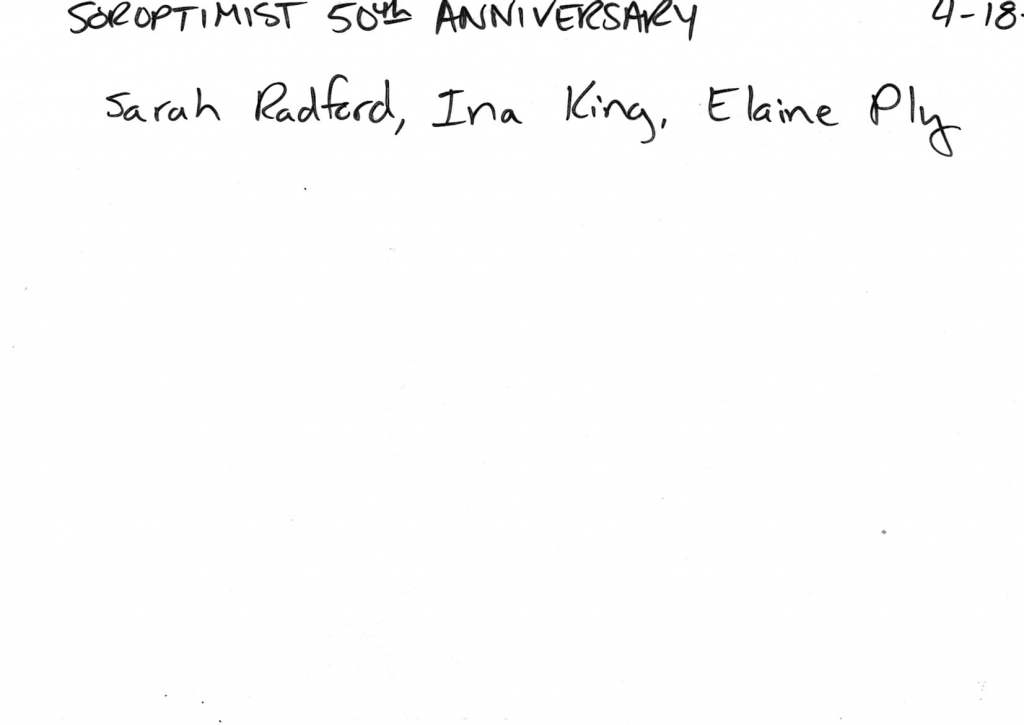 SOROPTIMIST 50th ANNIVERSARY 4-18-
Sarah Radford, Ina King, Elaine Ply